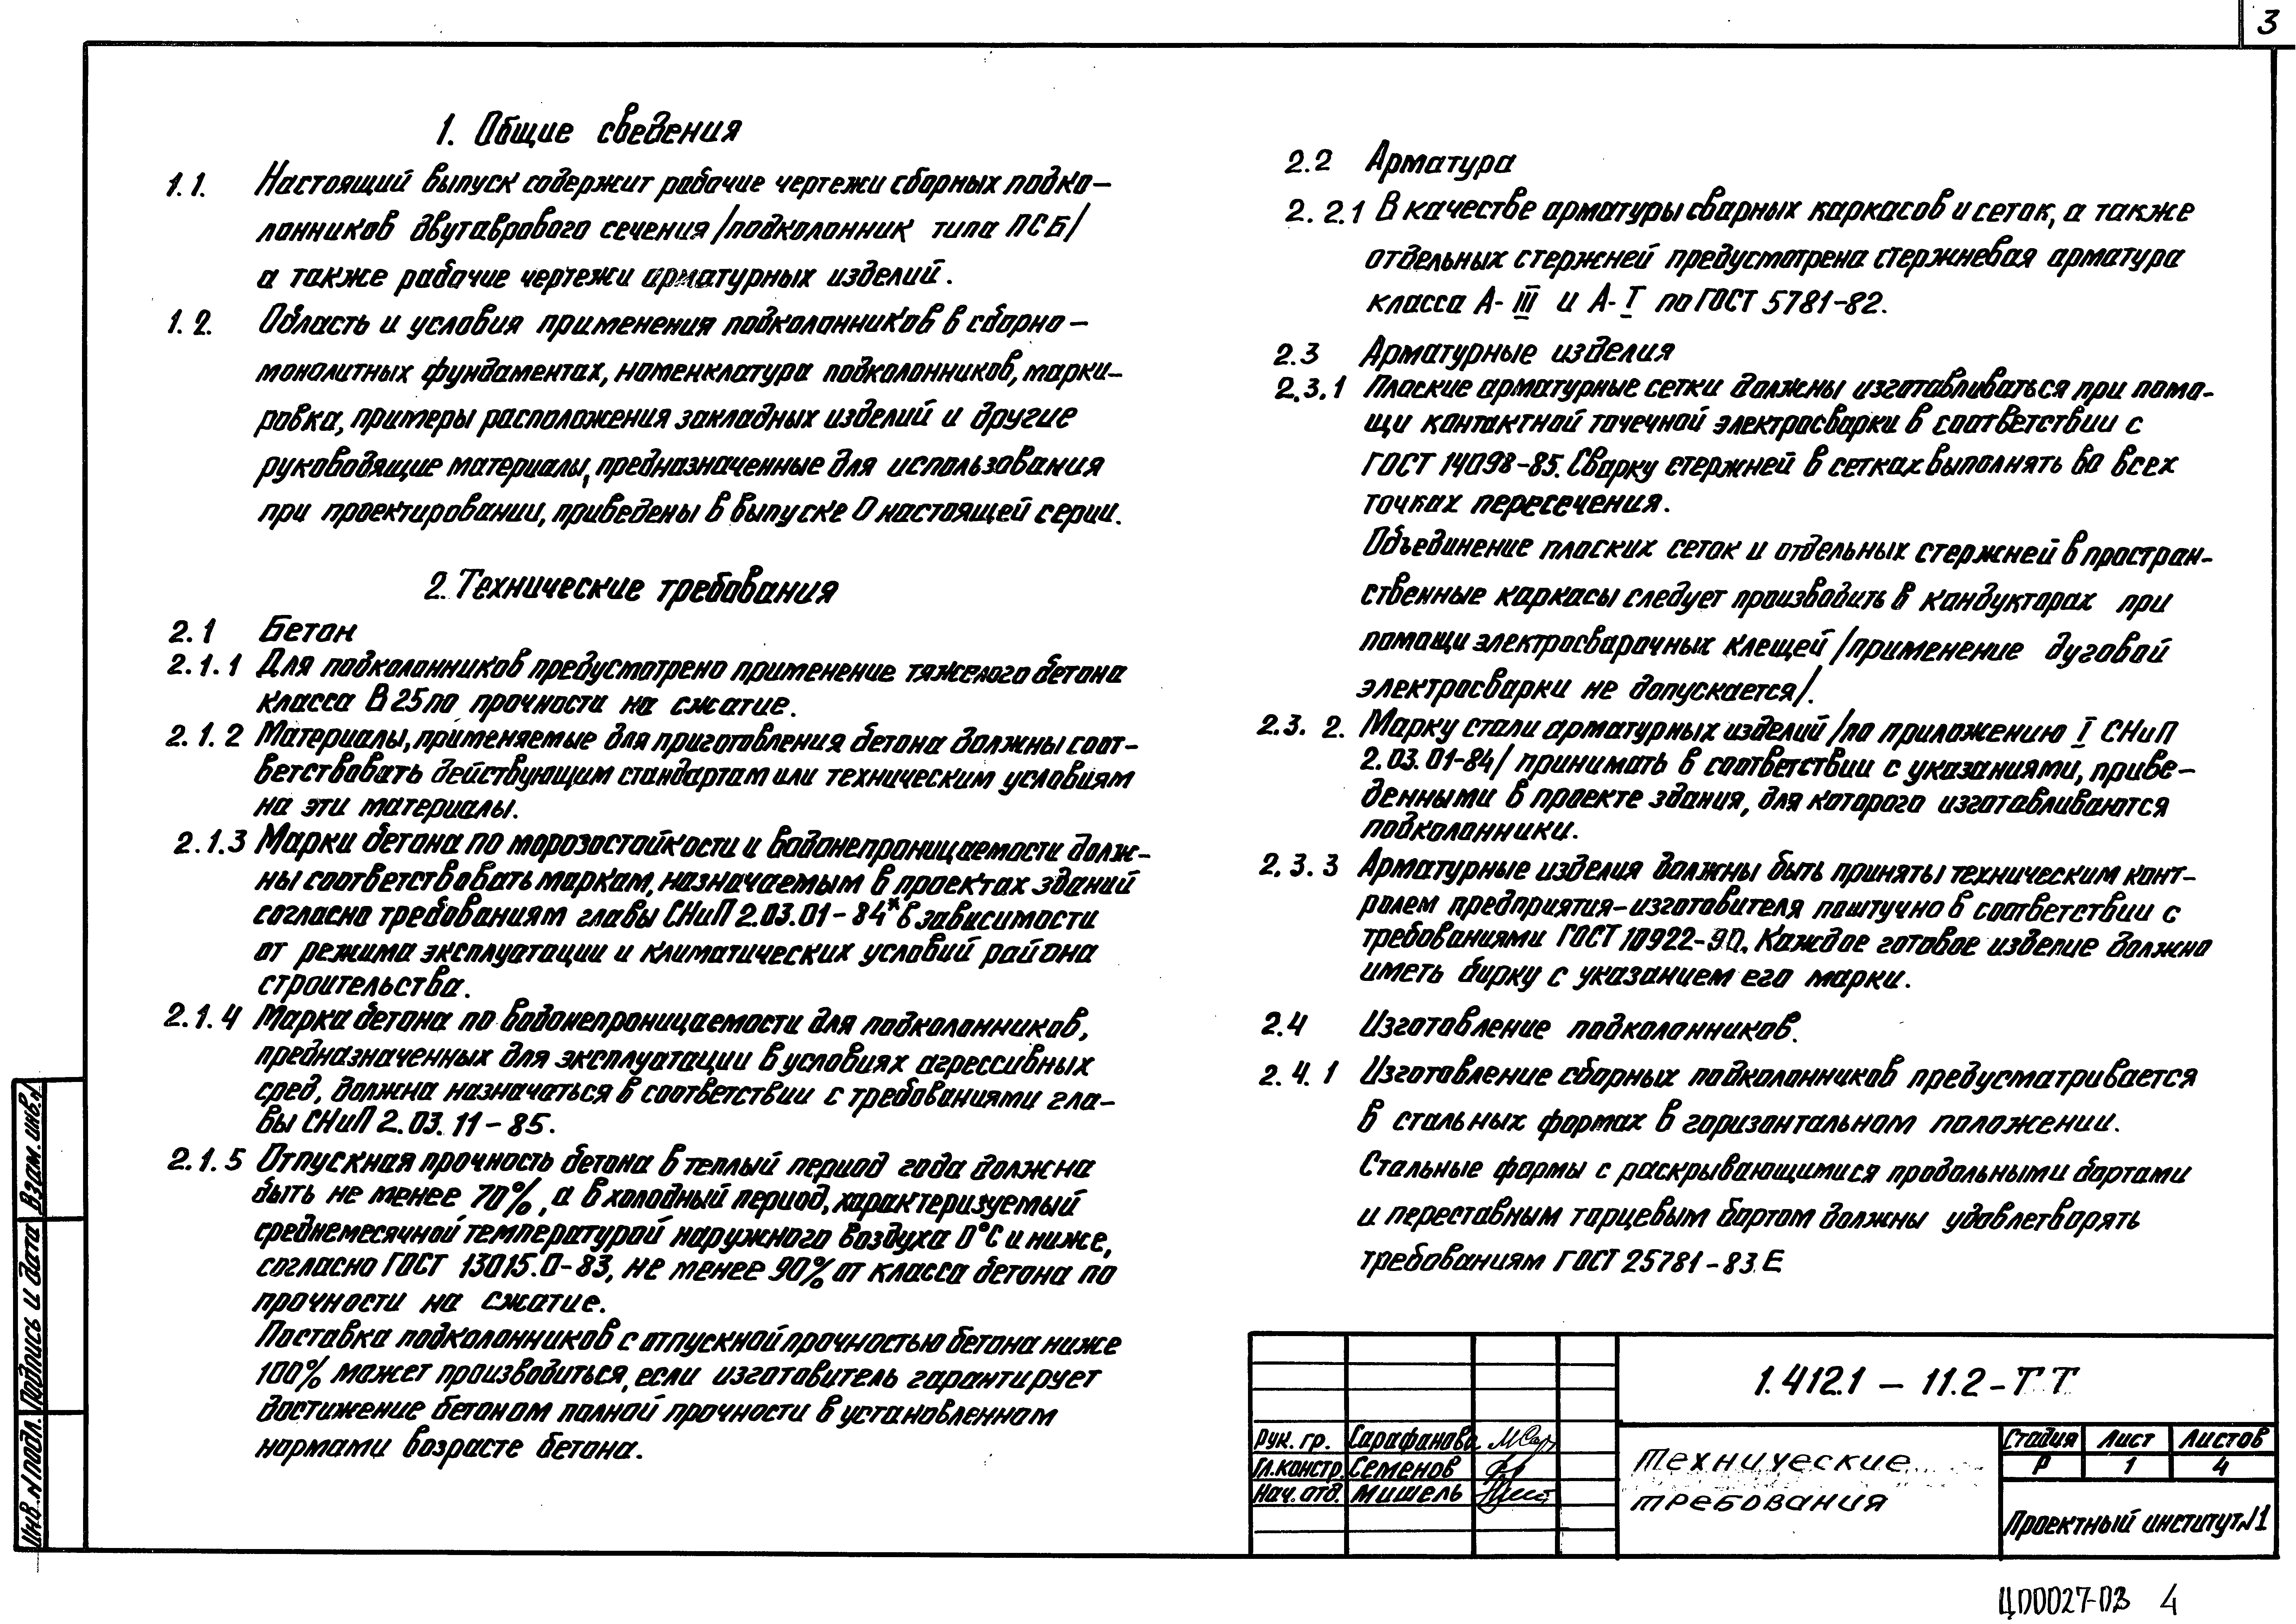 3
1. Общие сведения
1.1. Настоящий выпуск содержит рабочие чертежи сборных подко-
лонников двутаврового сечения /подколонник типа ПСБ/
а также рабочие чертежи арматурных изделий.
1.2. Область и условия применения подколонников в сборно-
монолитных фундаментах, номенклатура подколонников, марки-
ровка, примеры расположения закладных изделий и другие
руководящие материалы, предназначенные для использования
при проектировании, приведены в выпуске 0 настоящей серии.
2. Технические требования
2.1 Бетон
2.1.1 Для подколонников предусмотрено применение тяжелого бетона
класса В25 по прочности на сжатие.
2.1.2 Материалы, применяемые для приготовления бетона должны соот-
ветствовать действующим стандартам или техническим условиям
на эти материалы.
2.1.3 Марки бетона по морозостойкости и водонепроницаемости долж-
ны соответствовать маркам, назначаемым в проектах зданий
согласно требованиям главы СНиП 2.03.01-84* в зависимости
от режима эксплуатации и климатических условий района
строительства.
2.1.4 Марка бетона по водонепроницаемости для подколонников,
предназначенных для эксплуатации в условиях агрессивных
сред, должна назначаться в соответствии с требованиями гла-
вы СНиП 2.03.11-85.
2.1.5 Отпускная прочность бетона в теплый период года должна
быть не менее 70%, а в холодный период, характеризуемый
среднемесячной температурой наружного воздуха 0°С и ниже,
согласно ГОСТ 13015.0-83, не менее 90% от класса бетона по
прочности на сжатие.
Поставка подколонников с отпускной прочностью бетона ниже
100% может производиться, если изготовитель гарантирует
достижение бетоном полной прочности в установленном
нормами возрасте бетона.
2.2 Арматура
2.2.1 В качестве арматуры сварных каркасов и сеток, а также
отдельных стержней предусмотрена стержневая арматура
класса А-III и А-I по ГОСТ 5781-82.
2.3 Арматурные изделия
2.3.1 Плоские арматурные сетки должны изготавливаться при помо-
щи контактной точечной электросварки в соответствии с
ГОСТ 14098-85. Сварку стержней в сетках выполнять во всех
точках пересечения.
Объединение плоских сеток и отдельных стержней в простран-
ственные каркасы следует производить в кондукторах при
помощи электросварочных клещей /применение дуговой
электросварки не допускается/.
2.3.2. Марку стали арматурных изделий /по приложению I СНиП
2.03.01-84/ принимать в соответствии с указаниями, приве-
денными в проекте здания, для которого изготавливаются
подколонники.
2.3.3 Арматурные изделия должны быть приняты техническим конт-
ролем предприятия-изготовителя поштучно в соответствии с
требованиями ГОСТ 10922-90. Каждое готовое изделие должно
иметь бирку с указанием его марки.
2.4 Изготовление подколонников.
2.4.1 Изготовление сборных подколонников предусматривается
в стальных формах в горизонтальном положении.
Стальные формы с раскрывающимися продольными бортами
и переставным торцевым бортом должны удовлетворять
требованиям ГОСТ 25781-83.Е
1.412.1-11.2-ТТ
Рук. гр. Сарафанова
Гл.констр. Семенов
Нач. отд. Мишель
Технические
требования
Стадия Лист Листов
Р 1 4
Проектный институт N1
Инв. N подл. Подпись и дата Взам. инв. N
ЦП0027-03 4